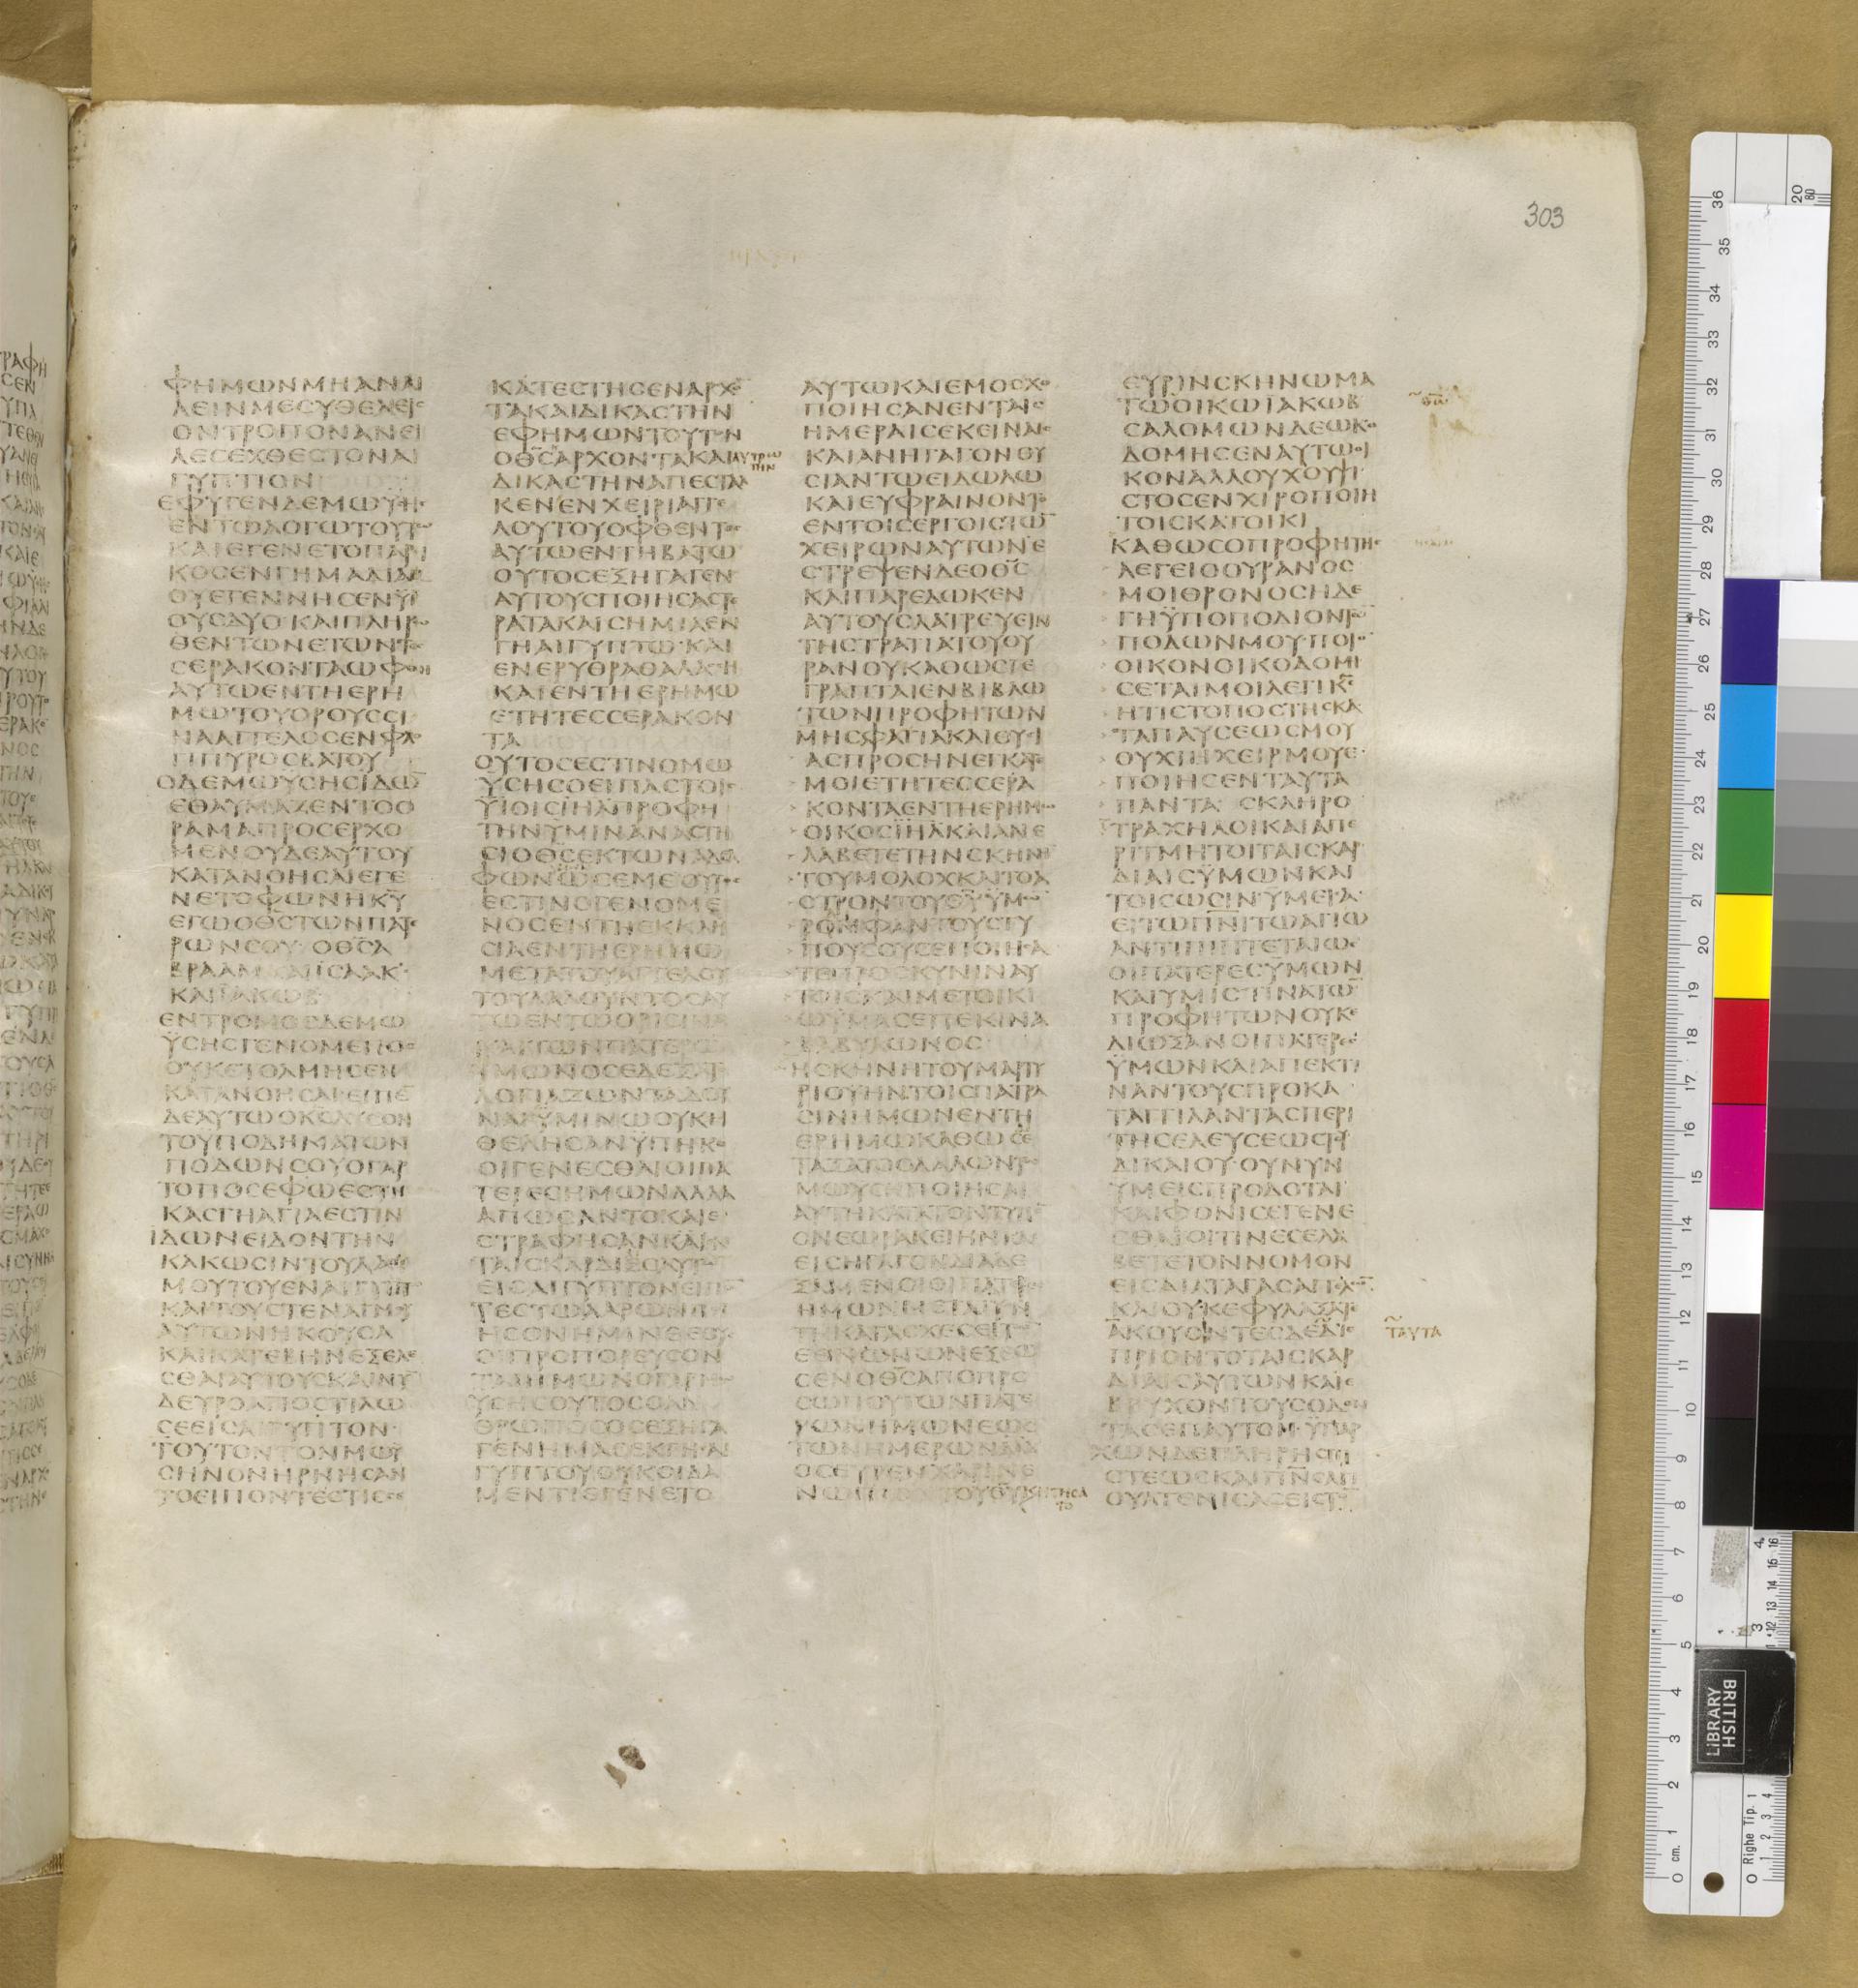 303
ΠΡΑΞΕΙΣ
ΦΗΜΩΝΜΗΑΝΑΙ
ΛΕΙΝΜΕϹΥΘΕΛΕΙϹ
ΟΝΤΡΟΠΟΝΑΝΕΙ
ΛΕϹΕΧΘΕϹΤΟΝΑΙ
ΓΥΠΤΙΟΝ
ΕΦΥΓΕΝΔΕΜΩΥϹΗϹ
ΕΝΤΩΛΟΓΩΤΟΥΤΩ
ΚΑΙΕΓΕΝΕΤΟΠΑΡΟΙ
ΚΟϹΕΝΓΗΜΑΔΙΑΜ
ΟΥΕΓΕΝΝΗϹΕΝΥΪ
ΟΥϹΔΥΟ ΚΑΙΠΛΗΡΩ
ΘΕΝΤΩΝΕΤΩΝΤΕϹ
ϹΕΡΑΚΟΝΤΑΩΦΘΗ
ΑΥΤΩΕΝΤΗΕΡΗ
ΜΩΤΟΥΟΡΟΥϹϹΙ
ΝΑΑΓΓΕΛΟϹΕΝΦΛΟ
ΓΙΠΥΡΟϹΒΑΤΟΥ
ΟΔΕΜΩΥϹΗϹΙΔΩ̅
ΕΘΑΥΜΑΖΕΝΤΟΟ
ΡΑΜΑΠΡΟϹΕΡΧΟ
ΜΕΝΟΥΔΕΑΥΤΟΥ
ΚΑΤΑΝΟΗϹΑΙΕΓΕ
ΝΕΤΟΦΩΝΗΚ̅Υ̅
ΕΓΩΟΘ̅Ϲ̅ΤΩΝΠΑΤΕ
ΡΩΝϹΟΥ ΟΘ̅Ϲ̅Α
ΒΡΑΑΜΚΑΙΙϹΑΑΚ
ΚΑΙΙΑΚΩΒ
ΕΝΤΡΟΜΟϹΔΕΜΩ
ΥϹΗϹΓΕΝΟΜΕΝΟϹ
ΟΥΚΕΤΟΛΜΗϹΕΝ
ΚΑΤΑΝΟΗϹΑΙΕΙΠΕ̅
ΔΕΑΥΤΩΟΚ̅Ϲ̅ΛΥϹΟΝ
ΤΟΥΠΟΔΗΜΑΤΩΝ
ΠΟΔΩΝϹΟΥΟΓΑΡ
ΤΟΠΟϹΕΦΩΕϹΤΗ
ΚΑϹΓΗΑΓΙΑΕϹΤΙΝ
ΙΔΩΝΕΙΔΟΝΤΗΝ
ΚΑΚΩϹΙΝΤΟΥΛΑΟΥ
ΜΟΥΤΟΥΕΝΑΙΓΥΠΤΩ
ΚΑΙΤΟΥϹΤΕΝΑΓΜΟΥ
ΑΥΤΩΝΗΚΟΥϹΑ
ΚΑΙΚΑΤΕΒΗΝΕΞΕΛΕ
ϹΘΑΙΑΥΤΟΥϹΚΑΙΝΥ̅
ΔΕΥΡΟΑΠΟϹΤΙΛΩ
ϹΕΕΙϹΑΙΓΥΠΤΟΝ
ΤΟΥΤΟΝΤΟΝΜΩΥ
ϹΗΝΟΝΗΡΝΗϹΑΝ
ΤΟΕΙΠΟΝΤΕϹΤΙϹϹΕ
ΚΑΤΕϹΤΗϹΕΝΑΡΧΟ̅
ΤΑΚΑΙΔΙΚΑϹΤΗΝ
ΕΦΗΜΩΝΤΟΥΤΟΝ
ΟΘ̅Ϲ̅ΑΡΧΟΝΤΑΚΑΙ
ΛΥΤΡΩ
ΤΗΝ
ΔΙΚΑϹΤΗΝΑΠΕϹΤΑΛ
ΚΕΝΕΝΧΕΙΡΙΑΓΓΕ
ΛΟΥΤΟΥΟΦΘΕΝΤΟϹ
ΑΥΤΩΕΝΤΗΒΑΤΩ
ΟΥΤΟϹΕΞΗΓΑΓΕΝ
ΑΥΤΟΥϹΠΟΙΗϹΑϹΤΕ
ΡΑΤΑΚΑΙϹΗΜΙΑΕΝ
ΓΗΑΙΓΥΠΤΩ ΚΑΙ
ΕΝΕΡΥΘΡΑΘΑΛΑϹϹΗ
ΚΑΙΕΝΤΗΕΡΗΜΩ
ΕΤΗΤΕϹϹΕΡΑΚΟΝ
ΤΑ
ΟΥΤΟϹΕϹΤΙΝΟΜΩ
ΥϹΗϹΟΕΙΠΑϹΤΟΙϹ
ΥΙΟΙϹΙ̅Η̅Λ̅ΠΡΟΦΗ
ΤΗΝΥΜΙΝΑΝΑϹΤΗ
ϹΙΟΘ̅Ϲ̅ΕΚΤΩΝΑΔΕΛ
ΦΩΝΥΜΩΝΩϹΕΜΕΟΥΤΟϹ
ΕϹΤΙΝΟΓΕΝΟΜΕ
ΝΟϹΕΝΤΗΕΚΚΛΗ
ϹΙΑΕΝΤΗΕΡΗΜΩ
ΜΕΤΑΤΟΥΑΓΓΕΛΟΥ
ΤΟΥΛΑΛΟΥΝΤΟϹΑΥ
ΤΩΕΝΤΩΟΡΙϹΙΝΑ
ΚΑΙΤΩΝΠΑΤΕΡΩ̅
ΥΜΩΝΟϹΕΔΕΞΑΤΟ
ΛΟΓΙΑΖΩΝΤΑΔΟΥ
ΝΑΙΥΜΙΝΩΟΥΚΗ
ΘΕΛΗϹΑΝΥΠΗΚΟ
ΟΙΓΕΝΕϹΘΑΙΟΙΠΑ
ΤΕΡΕϹΗΜΩΝΑΛΛΑ
ΑΠΩϹΑΝΤΟΚΑΙΕ
ϹΤΡΑΦΗϹΑΝΚΑΙΕΝ
ΤΑΙϹΚΑΡΔΙΑΙϹΑΥΤΩ̅
ΕΙϹΑΙΓΥΠΤΟΝΕΙΠΟ̅
ΤΕϹΤΩΑΑΡΩΝΠΟΙ
ΗϹΟΝΗΜΙΝΘΕΟΥϹ
ΟΙΠΡΟΠΟΡΕΥϹΟΝ
ΤΑΙΗΜΩΝΟΓΑΡΜΩ
ΥϹΗϹΟΥΤΟϹΟΑΝ
ΘΡΩΠΟϹΟϹΕΞΗΓΑ
ΓΕΝΗΜΑϹΕΚΓΗϹΑΙ
ΓΥΠΤΟΥΟΥΚΟΙΔΑ
ΜΕΝΤΙΕΓΕΝΕΤΟ
ΑΥΤΩΚΑΙΕΜΟϹΧΟ
ΠΟΙΗϹΑΝΕΝΤΑΙϹ
ΗΜΕΡΑΙϹΕΚΕΙΝΑΙϹ
ΚΑΙΑΝΗΓΑΓΟΝΘΥ
ϹΙΑΝΤΩΕΙΔΩΛΩ
ΚΑΙΕΥΦΡΑΙΝΟΝΤΟ
ΕΝΤΟΙϹΕΡΓΟΙϹΤΩ̅
ΧΕΙΡΩΝΑΥΤΩΝΕ
ϹΤΡΕΨΕΝΔΕΟΘ̅Ϲ̅
ΚΑΙΠΑΡΕΔΩΚΕΝ
ΑΥΤΟΥϹΛΑΤΡΕΥΕΙΝ
ΤΗϹΤΡΑΤΙΑΤΟΥΟΥ
ΡΑΝΟΥΚΑΘΩϹΓΕ
ΓΡΑΠΤΑΙΕΝΒΙΒΛΩ
ΤΩΝΠΡΟΦΗΤΩΝ
ΜΗϹΦΑΓΙΑΚΑΙΘΥϹΙ
ΑϹΠΡΟϹΗΝΕΓΚΑΤΕ
ΜΟΙΕΤΗΤΕϹϹΕΡΑ
ΚΟΝΤΑΕΝΤΗΕΡΗΜΩ
ΟΙΚΟϹΙ̅Η̅Λ̅ΚΑΙΑΝΕ
ΛΑΒΕΤΕΤΗΝϹΚΗΝΗ̅
ΤΟΥΜΟΛΟΧΚΑΙΤΟΑ
ϹΤΡΟΝΤΟΥΘ̅Υ̅ΥΜΩ̅
ΡΟΜΦΑΝΤΟΥϹΤΥ
ΠΟΥϹΟΥϹΕΠΟΙΗϹΑ
ΤΕΠΡΟϹΚΥΝΙΝΑΥ
ΤΟΙϹΚΑΙΜΕΤΟΙΚΙ
ΩΥΜΑϹΕΠΕΚΙΝΑ
ΒΑΒΥΛΩΝΟϹ
ΗϹΚΗΝΗΤΟΥΜΑΡΤΥ
ΡΙΟΥΗΝΤΟΙϹΠΑΤΡΑ
ϹΙΝΗΜΩΝΕΝΤΗ
ΕΡΗΜΩΚΑΘΩϹΔΙΕ
ΤΑΞΑΤΟΟΛΑΛΩΝΤΩ
ΜΩΥϹΗΠΟΙΗϹΑΙ
ΑΥΤΗΚΑΤΑΤΟΝΤΥΠΟ̅
ΟΝΕΩΡΑΚΕΙΗΝΚΑΙ
ΕΙϹΗΓΑΓΟΝΔΙΑΔΕ
ΞΑΜΕΝΟΙΟΙΠΑΤΕΡΕϹ
ΗΜΩΝΜΕΤΑΙΥΗ
ΤΗΚΑΤΑϹΧΕϹΕΙΤΩ̅
ΕΘΝΩΝΩΝΕΞΕΩ
ϹΕΝΟΘ̅Ϲ̅ΑΠΟΠΡΟ
ϹΩΠΟΥΤΩΝΠΑΤΕ
ΡΩΝΗΜΩΝΕΩϹ
ΤΩΝΗΜΕΡΩΝΔΑΔ
ΟϹΕΥΡΕΝΧΑΡΙΝΕ
ΝΩΠΙΟΝΤΟΥΘ̅Υ̅
ΚΗΤΗϹΑ
ΤΟ
ΕΥΡΙΝϹΚΗΝΩΜΑ
ΤΩΟΙΚΩΙΑΚΩΒ
ϹΑΛΟΜΩΝΔΕΟΙΚΟ
ΔΟΜΗϹΕΝΑΥΤΩΟΙ
ΚΟΝΑΛΛΟΥΧΟΥΨΙ
ϹΤΟϹΕΝΧΙΡΟΠΟΙΗ
ΤΟΙϹΚΑΤΟΙΚΙ
ΚΑΘΩϹΟΠΡΟΦΗΤΗϹ
ΛΕΓΕΙΟΟΥΡΑΝΟϹ
ΜΟΙΘΡΟΝΟϹΗΔΕ
ΓΗΥΠΟΠΟΔΙΟΝΤΩ̅
ΠΟΔΩΝΜΟΥ ΠΟΙΟ̅
ΟΙΚΟΝΟΙΚΟΔΟΜΗ
ϹΕΤΑΙΜΟΙΛΕΓΙΚ̅Ϲ̅
ΗΤΙϹΤΟΠΟϹΤΗϹΚΑ
ΤΑΠΑΥϹΕΩϹΜΟΥ
ΟΥΧΙΗΧΕΙΡΜΟΥΕ
ΠΟΙΗϹΕΝΤΑΥΤΑ
ΠΑΝΤΑ ϹΚΛΗΡΟ
ΤΡΑΧΗΛΟΙΚΑΙΑΠΕ
ΡΙΤΜΗΤΟΙΤΑΙϹΚΑΡ
ΔΙΑΙϹΥΜΩΝΚΑΙ
ΤΟΙϹΩϹΙΝ ΥΜΕΙϹΑ
ΕΙΤΩΠ̅Ν̅Ι̅ΤΩΑΓΙΩ
ΑΝΤΙΠΙΠΤΕΤΑΙΩϹ
ΟΙΠΑΤΕΡΕϹΥΜΩΝ
ΚΑΙΥΜΙϹΤΙΝΑΤΩ̅
ΠΡΟΦΗΤΩΝΟΥΚΕ
ΔΙΩΞΑΝΟΙΠΑΤΕΡΕϹ
ΥΜΩΝΚΑΙΑΠΕΚΤΙ
ΝΑΝΤΟΥϹΠΡΟΚΑ
ΤΑΓΓΙΛΑΝΤΑϹΠΕΡΙ
ΤΗϹΕΛΕΥϹΕΩϹΤΟΥ
ΔΙΚΑΙΟΥ ΟΥΝΥΝ
ΥΜΕΙϹΠΡΟΔΟΤΑΙ
ΚΑΙΦΟΝΙϹΕΓΕΝΕ
ϹΘΑΙΟΙΤΙΝΕϹΕΛΑ
ΒΕΤΕΤΟΝΝΟΜΟΝ
ΕΙϹΔΙΑΤΑΓΑϹΑΓΓΕΛΩ̅
ΚΑΙΟΥΚΕΦΥΛΑΞΑΤΕ
ΑΚΟΥΟΝΤΕϹΔΕΔΙΕ
ΤΑΥΤΑ
ΠΡΙΟΝΤΟΤΑΙϹΚΑΡ
ΔΙΑΙϹΑΥΤΩΝΚΑΙΕ
ΒΡΥΧΟΝΤΟΥϹΟΔΟΝ
ΤΑϹΕΠΑΥΤΟΝ ΥΠΑΡ
ΧΩΝΔΕΠΛΗΡΗϹΠΙ
ϹΤΕΩϹΚΑΙΠ̅Ν̅Ϲ̅ΑΓΙ
ΟΥΑΤΕΝΙϹΑϹΕΙϹΤΟ̅